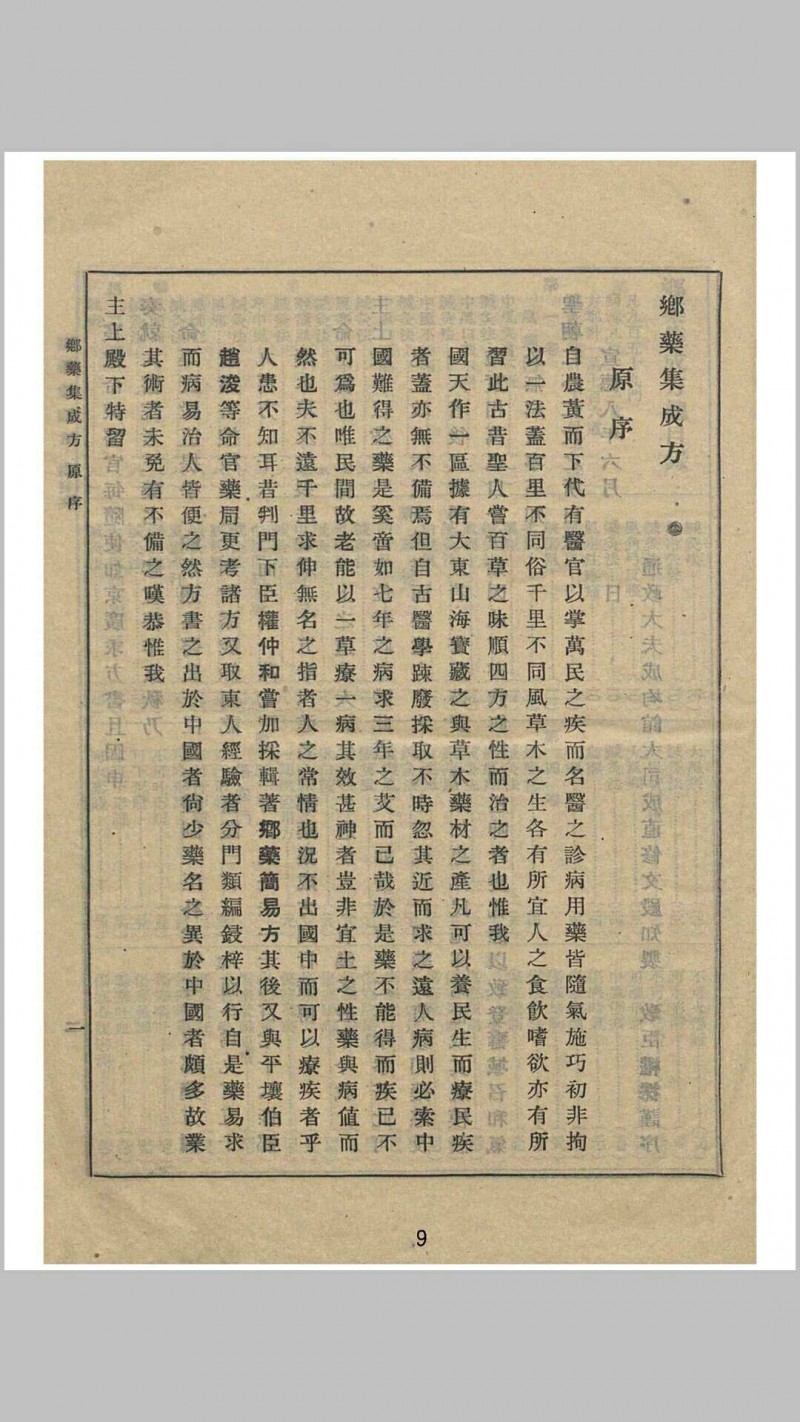 鄕藥集成方
原序
自農黃而下代有醫官以掌萬民之疾而名醫之診病用藥皆隨氣施巧初非拘
以一法蓋百里不同俗千里不同風草木之生各有所宜人之食飮嗜欲亦有所
習此古昔聖人嘗百草之味順四方之性而治之者也惟我
國天作一區據有大東山海寳藏之與草木藥材之產凡可以養民生而療民疾
者蓋亦無不備焉但自古醫學踈廢採取不時忽其近而求之遠人病則必索中
國難得之藥是奚啻如七年之病求三年之艾而已哉於是藥不能得而疾已不
可爲也唯民間故老能以一草療一病其效甚神者豈非宜土之性藥與病値而
然也夫不遠千里求伸無名之指者人之常情也況不出國中而可以療疾者乎
人患不知耳昔判門下臣權仲和嘗加採輯著鄕藥簡易方其後又與平壤伯臣
趙浚等命官藥局更考諸方又取東人經驗者分門類編鋟梓以行自是藥易求
而病易治人皆便之然方書之出於中國者尙少藥名之異於中國者頗多故業
其術者未免有不備之嘆恭惟我
主上殿下特留
鄕藥集成方 原序
一
9